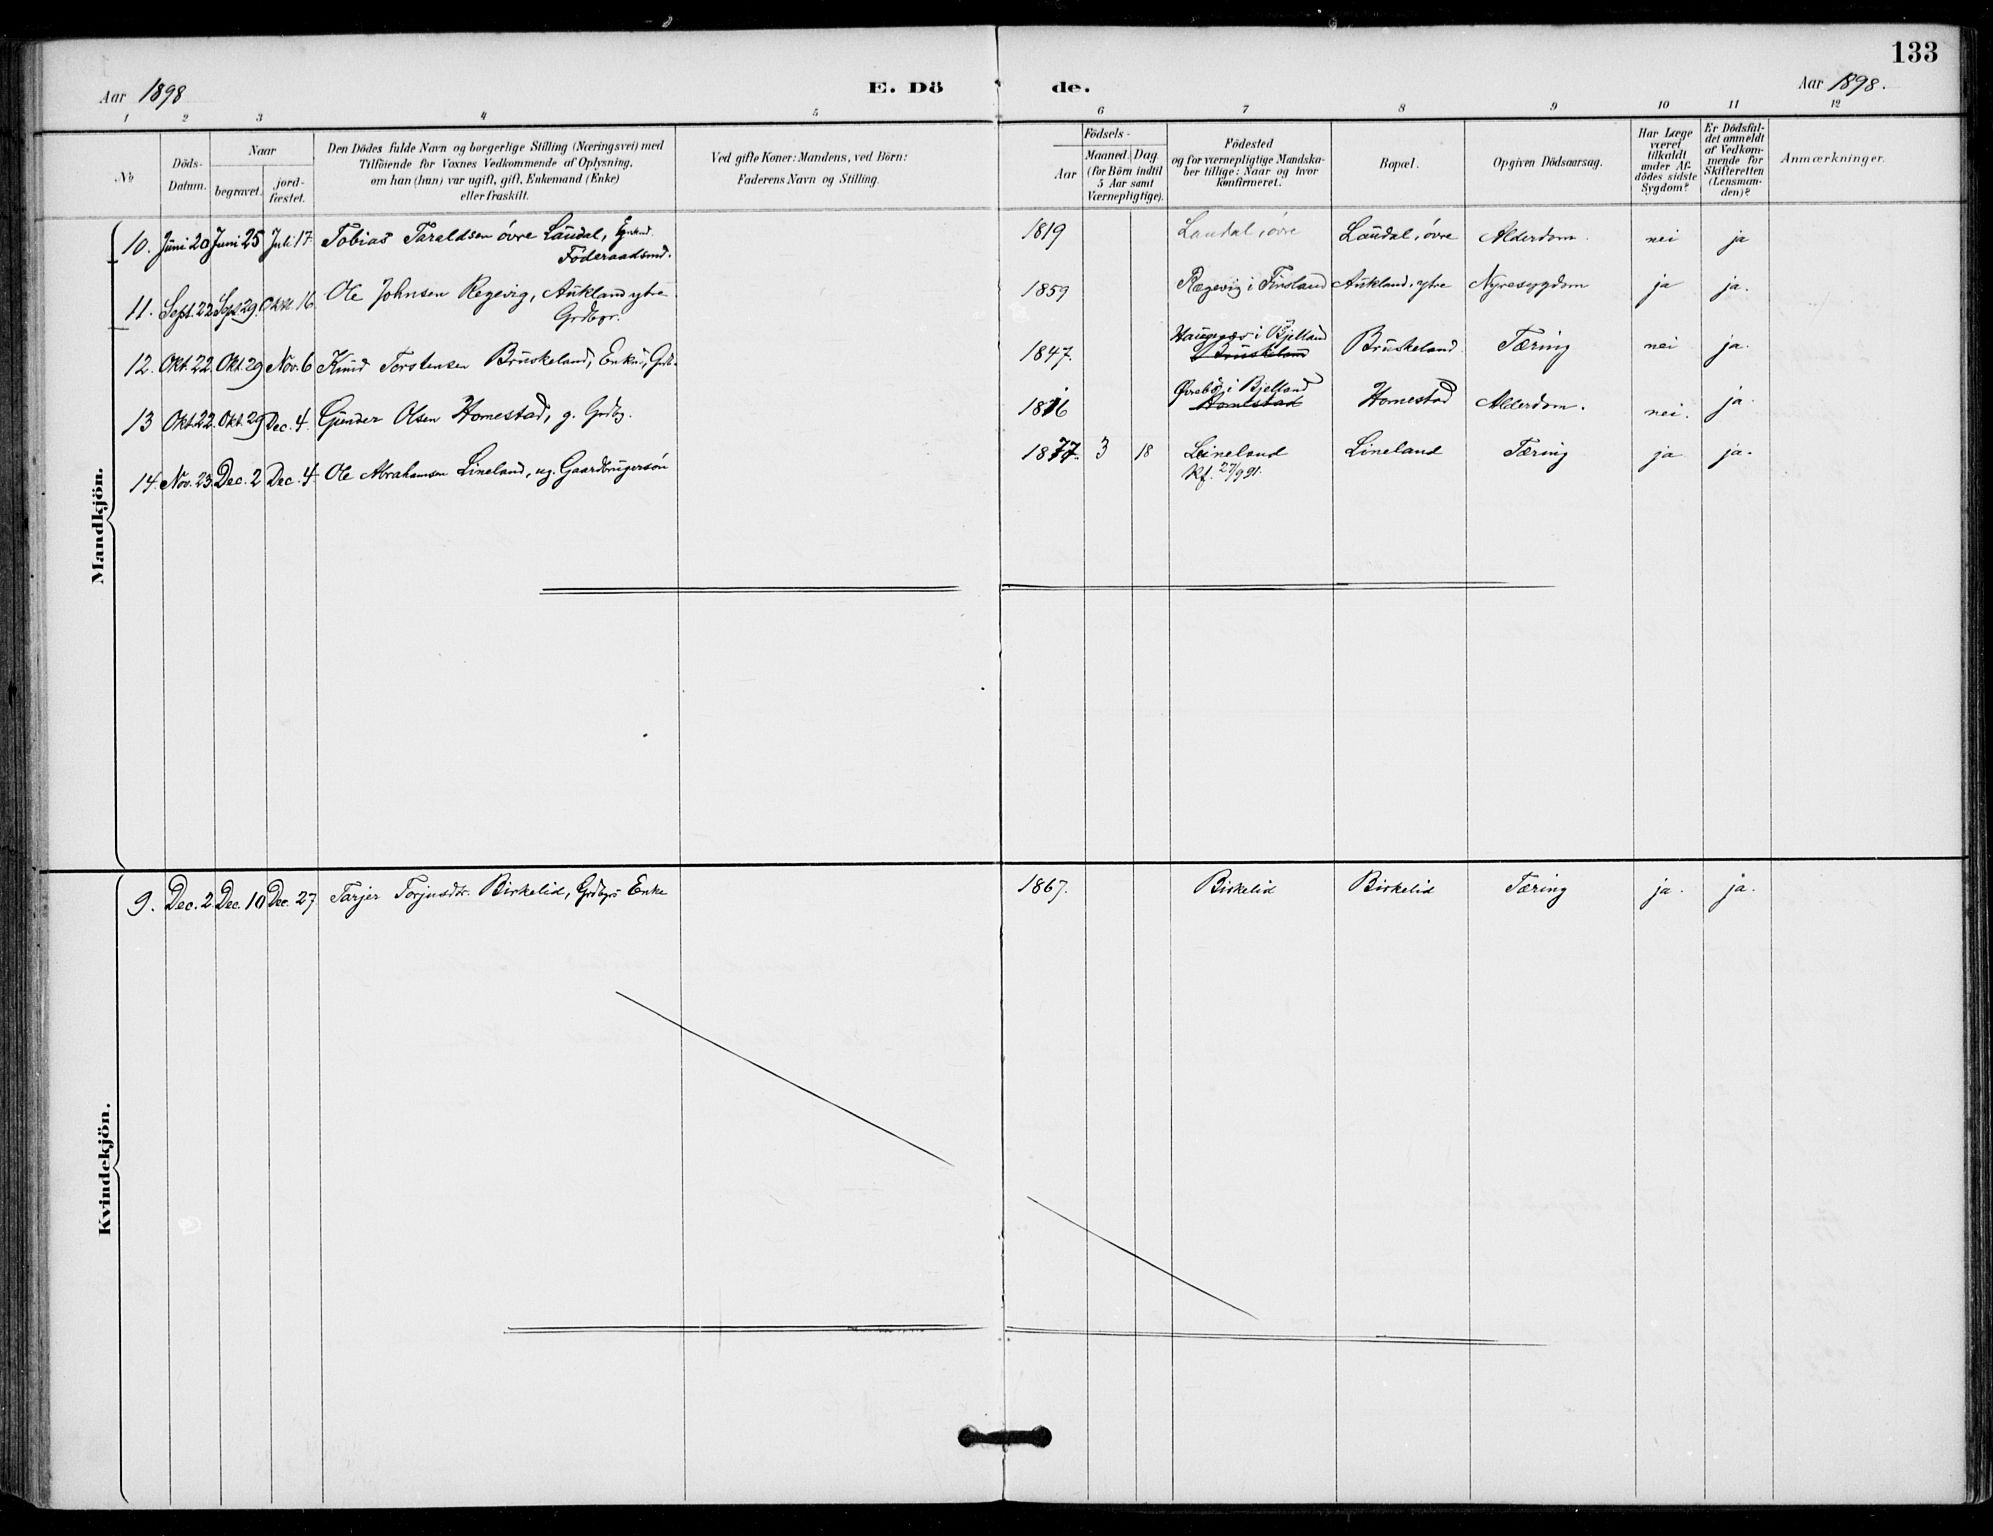 133
Aar 1898 E. Dö de. Aar 1898.
1 2 3 4 5 6 7 8 9 10 11 12
No
Döds-
Datum.
Naar
begravet.
jord-
fæstet.
Den Dödes fulde Navn og borgerlige Stilling (Næringsvei) med
Tilföiende for Voxnes Vedkommende af Oplysning,
om han (hun) var ugift, gift, Enkemand (Enke)
eller fraskilt.
Ved gifte Koner: Mandens, ved Börn:
Faderens Navn og Stilling.
Födsels-
Aar
Maaned. Dag.
(for Börn indtil
5 Aar samt
Værnepligtige).
Födested
og for værnepligtige Mandska-
ber tillige: Naar og hvor
konfirmeret.
Bopæl.
Opgiven Dödsaarsag.
Har Læge
været
tilkaldt
under Af-
dödes sidste
Sygdom?
Er Dödsfal-
det anmeldt
af Vedkom-
mende for
Skifteretten
(Lensman-
den)?
Anmærkninger.
Mandkjön.
10. Juni 20 Juni 25 Juli 17 Tobias Taraldsen övre Laudal, Enkmd. 1819 Laudal, övre Laudal, övre Alderdom. nei ja
Föderaadsmd.
11. Sept. 22 Sept. 29 Okt. 16. Ole Johnsen Regevig, Aukland ytre 1859 Rægevig i Finsland Aukland, ytre Nyresygdom ja ja.
Grdbgr.
Haugnæs i Bjelland
12. Okt. 22. Okt. 29 Nov. 6 Knud Torstensen Bruskeland, Enkm, Grdb. 1847. Bruskeland Bruskeland Tæring nei ja.
Övrebö i Bjelland
13 Okt. 22. Okt. 29 Dec. 4. Gunder Olsen Homestad, g. Grdbg. 1816 Homestad Homestad Alderdom. nei. ja.
14. Nov. 23. Dec. 2 Dec. 4 Ole Abrahamsen Lineland, ug. Gaardbrugersön 1877. 3 18 Lineland Lineland Tæring ja ja.
Kf. 27/9 91.
Kvindekjön.
9. Dec. 2 Dec. 10 Dec. 27 Tarjer Torjusdtr. Birkelid, Grdbgrs Enke 1867. Birkelid Birkelid Tæring ja. ja.